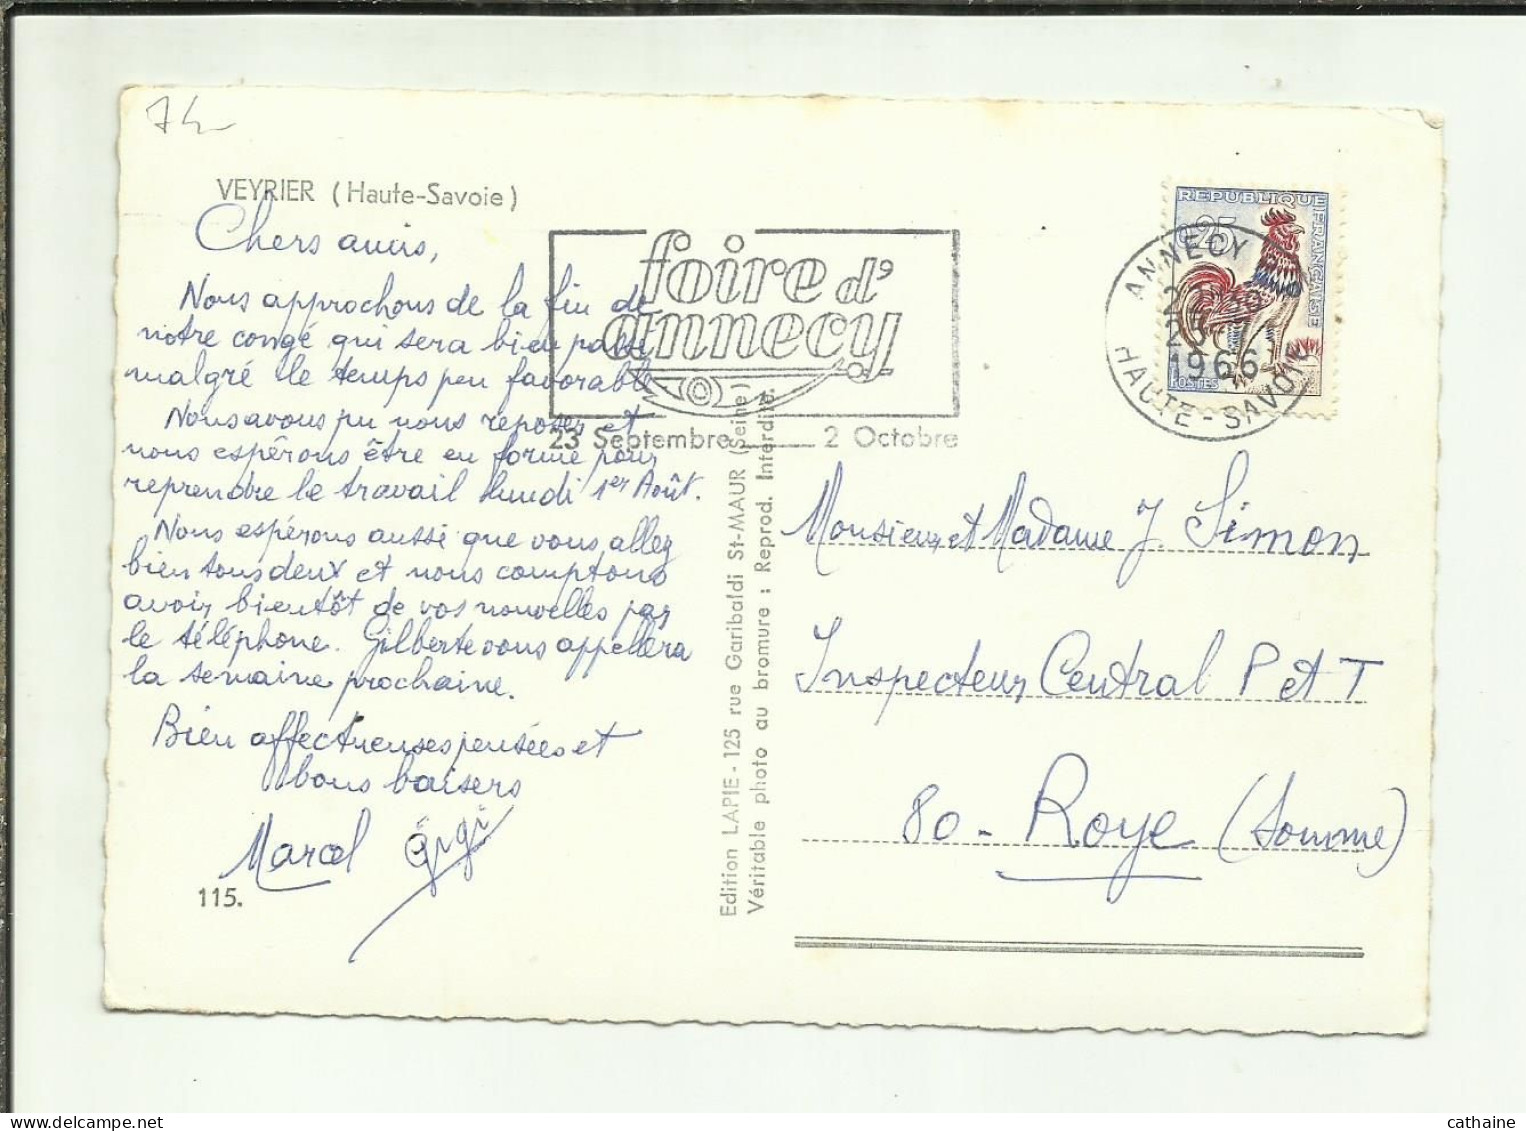 74
VEYRIER (Haute-Savoie)
Chers amis,
Nous approchons de la fin de
notre congé qui sera bien passé
malgré le temps peu favorable
Nous avons pu nous reposer et
nous espérons être en forme pour
reprendre le travail lundi 1er Août.
Nous espérons aussi que vous allez
bien tous deux et nous comptons
avoir bientôt de vos nouvelles par
le téléphone. Gilberte vous appellera
la semaine prochaine.
Bien affectueuses pensées et
bons baisers
Marcel Gigi
115.
foire d'
annecy
23 Septembre 2 Octobre
Edition LAPIE - 125 rue Garibaldi St-MAUR (Seine)
Véritable photo au bromure : Reprod. Interdite.
REPUBLIQUE FRANÇAISE
0,25
POSTES
ANNECY
1966
HAUTE-SAVOIE
Monsieur et Madame J. Simon
Inspecteur Central P et T
80 - Roye (Somme)
cathaine